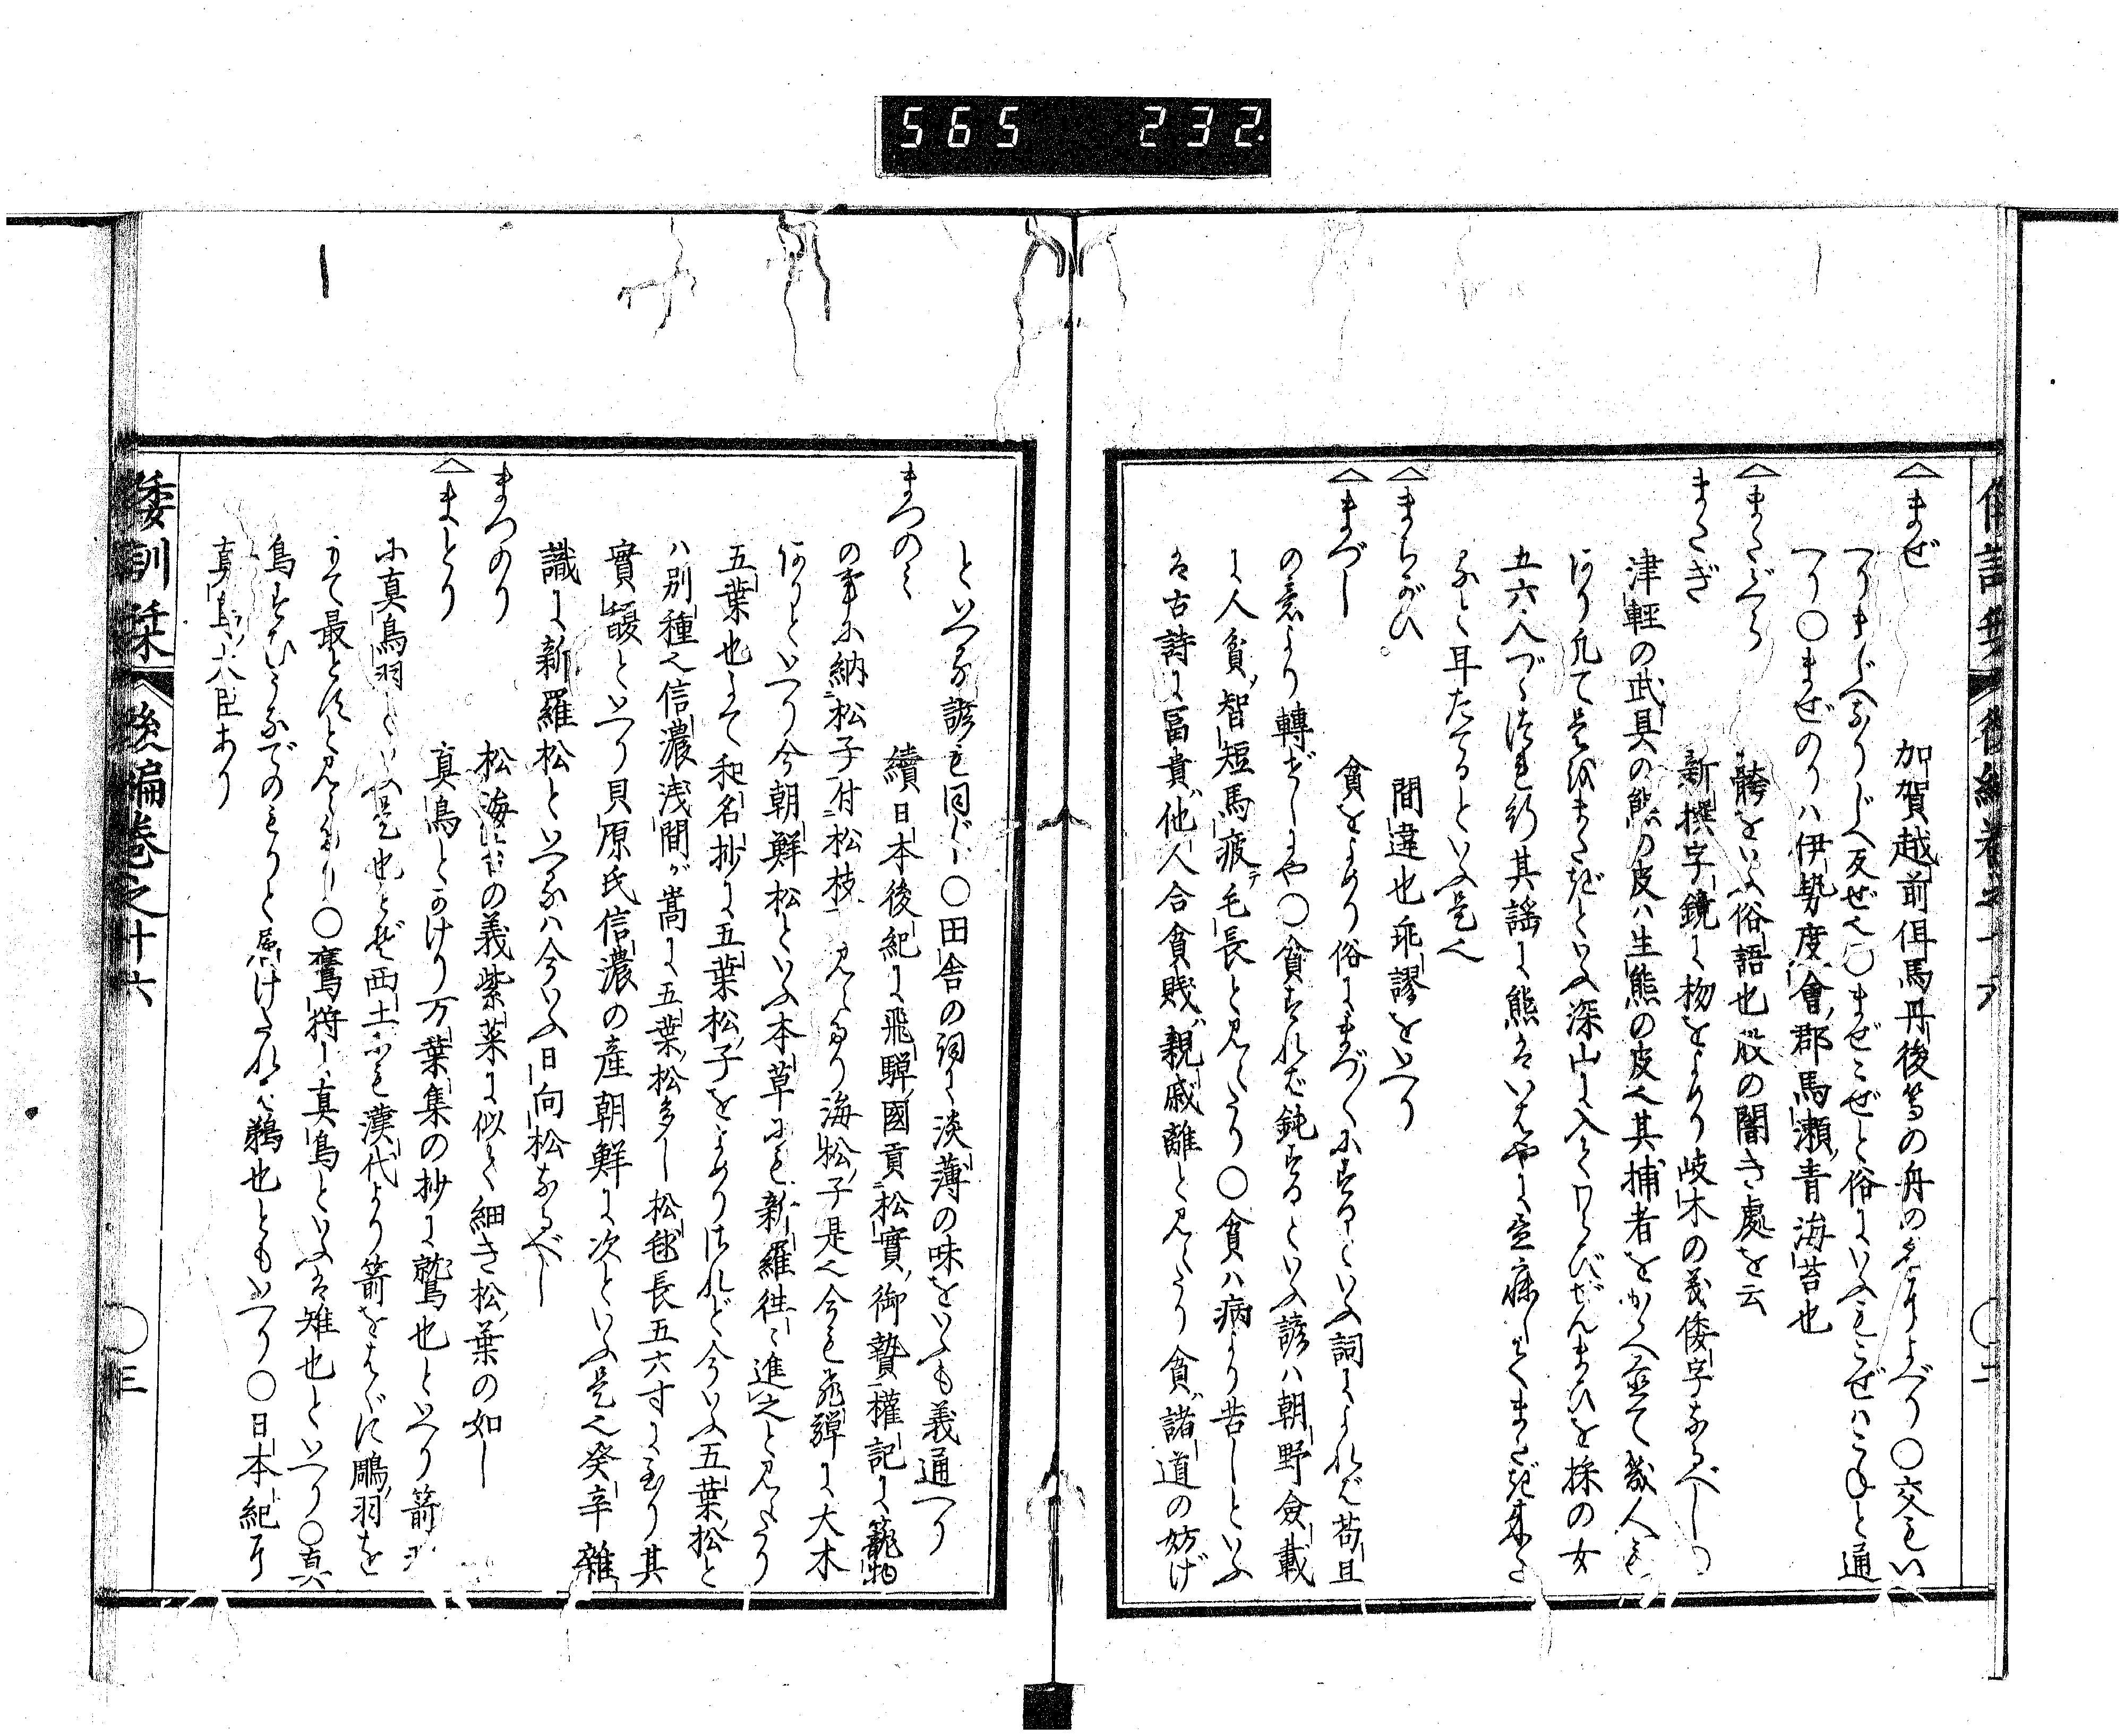 565 232
倭訓栞 後編巻之十六 ○二
まぜ 加賀越前但馬丹後等の舟の名によべり○交をい
へりまじへなりじへ反ぜ也○まぜこぜと俗にいへりこぜハこねと通
へり○まぜのりハ伊勢度會郡馬瀬青海苔也
またぐら 胯をいふ俗語也股の闇き處を云
またぎ 新撰字鏡に杈をよめり岐木の義倭字なるべし○
津輕の武具の熊の皮ハ生熊の皮也其捕者をかゝへ置て幾人も
あり凡て是をまたぎといふ深山に入てわらびぜんまひを採の女
五六人づゝつれ行其謡に熊はいはやに昼寐してまたぎ来た
かと耳たてるといふ是也
まちがひ 間違也乖謬をいへり
まづし 貧をよめり俗にまづ〱にするといふ詞によれば苟且
の意より轉ぜしにや○貧すれば鈍するといふ諺ハ朝野僉載
に人貧智短馬疲毛長と見えたり○貧ハ病より苦しといふ
は古詩に富貴他人合貧賤親戚離と見えたり貧諸道の妨げ
といへる諺も同じ○田舎の詞に淡薄の味をいふも義通へり
まつのみ 續日本後紀に飛騨國貢松實御贄權記に籠物
の事に納松子付松枝見えたり海松子是也今も飛弾に大木
ありといへり今朝鮮松といふ本草にも新羅往々進之と見えたり
五葉也よて和名抄に五葉松子をよめりされど今いふ五葉松と
ハ別種也信濃浅間が嵩に五葉松多し松毬長五六寸に至り其
實馥といへり貝原氏信濃の産朝鮮に次といふ是也癸辛雜
識に新羅松といへるハ今いふ日向松なるべし
まつのり 松海苔の義紫菜に似て細き松葉の如し
まとり 真鳥とかけり万葉集の抄に鷲也といへり箭羽
に真鳥羽といふ是也とぞ西土にも漢代より箭をはぐに鵰羽を
もて最とすと見えたり○鷹狩に真鳥といふは雉也といへり○真
鳥すむうなでのもりと属けたれば鵜也ともいへり○日本紀に
真鳥大臣あり
倭訓栞 後編巻之十六 ○三